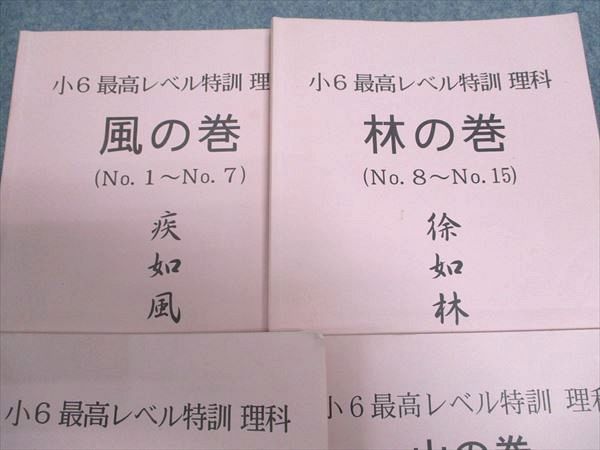 小6 最高レベル特訓 理科
風の巻
(No. 1～No. 7)
疾
如
風
小6 最高レベル特訓 理科
林の巻
(No. 8～No. 15)
徐
如
林
小6 最高レベル特訓 理科
小6 最高レベル特訓 理科
山の巻